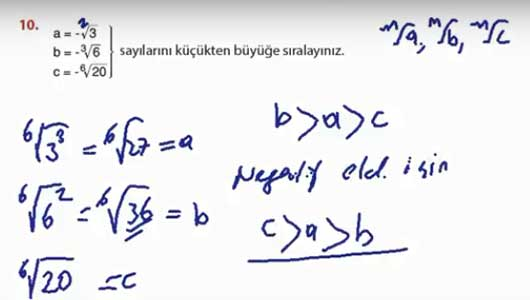 10. a = -²√3
b = -³√6 } sayılarını küçükten büyüğe sıralayınız.
c = -⁶√20
ᵐ√a, ᵐ√b, ᵐ√c
⁶√3³ = ⁶√27 = a
⁶√6² = ⁶√36 = b
⁶√20 = c
b > a > c
Negatif old. için
c > a > b